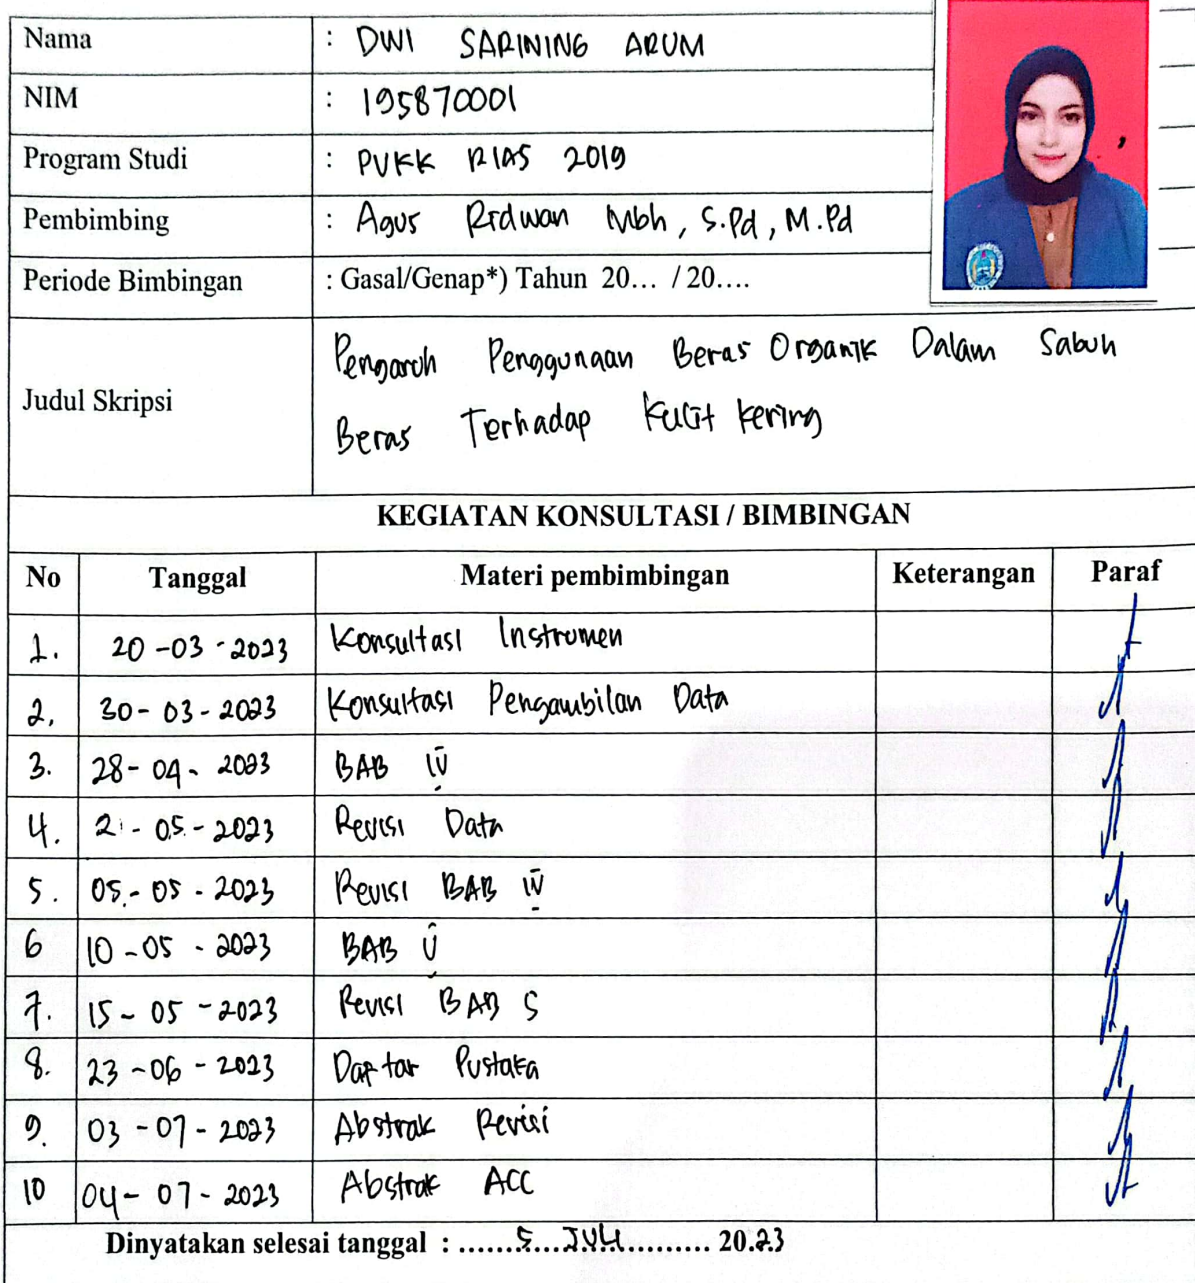 Nama : DWI SARINING ARUM
NIM : 195870001
Program Studi : PVKK RIAS 2019
Pembimbing : Agus Ridwan Mbh, S.Pd, M.Pd
Periode Bimbingan : Gasal/Genap*) Tahun 20... / 20....
Judul Skripsi
Pengaruh Penggunaan Beras Organik Dalam Sabun
Beras Terhadap Kulit Kering
KEGIATAN KONSULTASI / BIMBINGAN
No Tanggal Materi pembimbingan Keterangan Paraf
1. 20-03-2023 Konsultasi Instrumen
2. 30-03-2023 Konsultasi Pengambilan Data
3. 28-04-2023 BAB IV
4. 2-05-2023 Revisi Data
5. 05-05-2023 Revisi BAB IV
6 10-05-2023 BAB V
7. 15-05-2023 Revisi BAB 5
8. 23-06-2023 Daftar Pustaka
9. 03-07-2023 Abstrak Revisi
10 04-07-2023 Abstrak ACC
Dinyatakan selesai tanggal : ......5...JULI........... 20.23